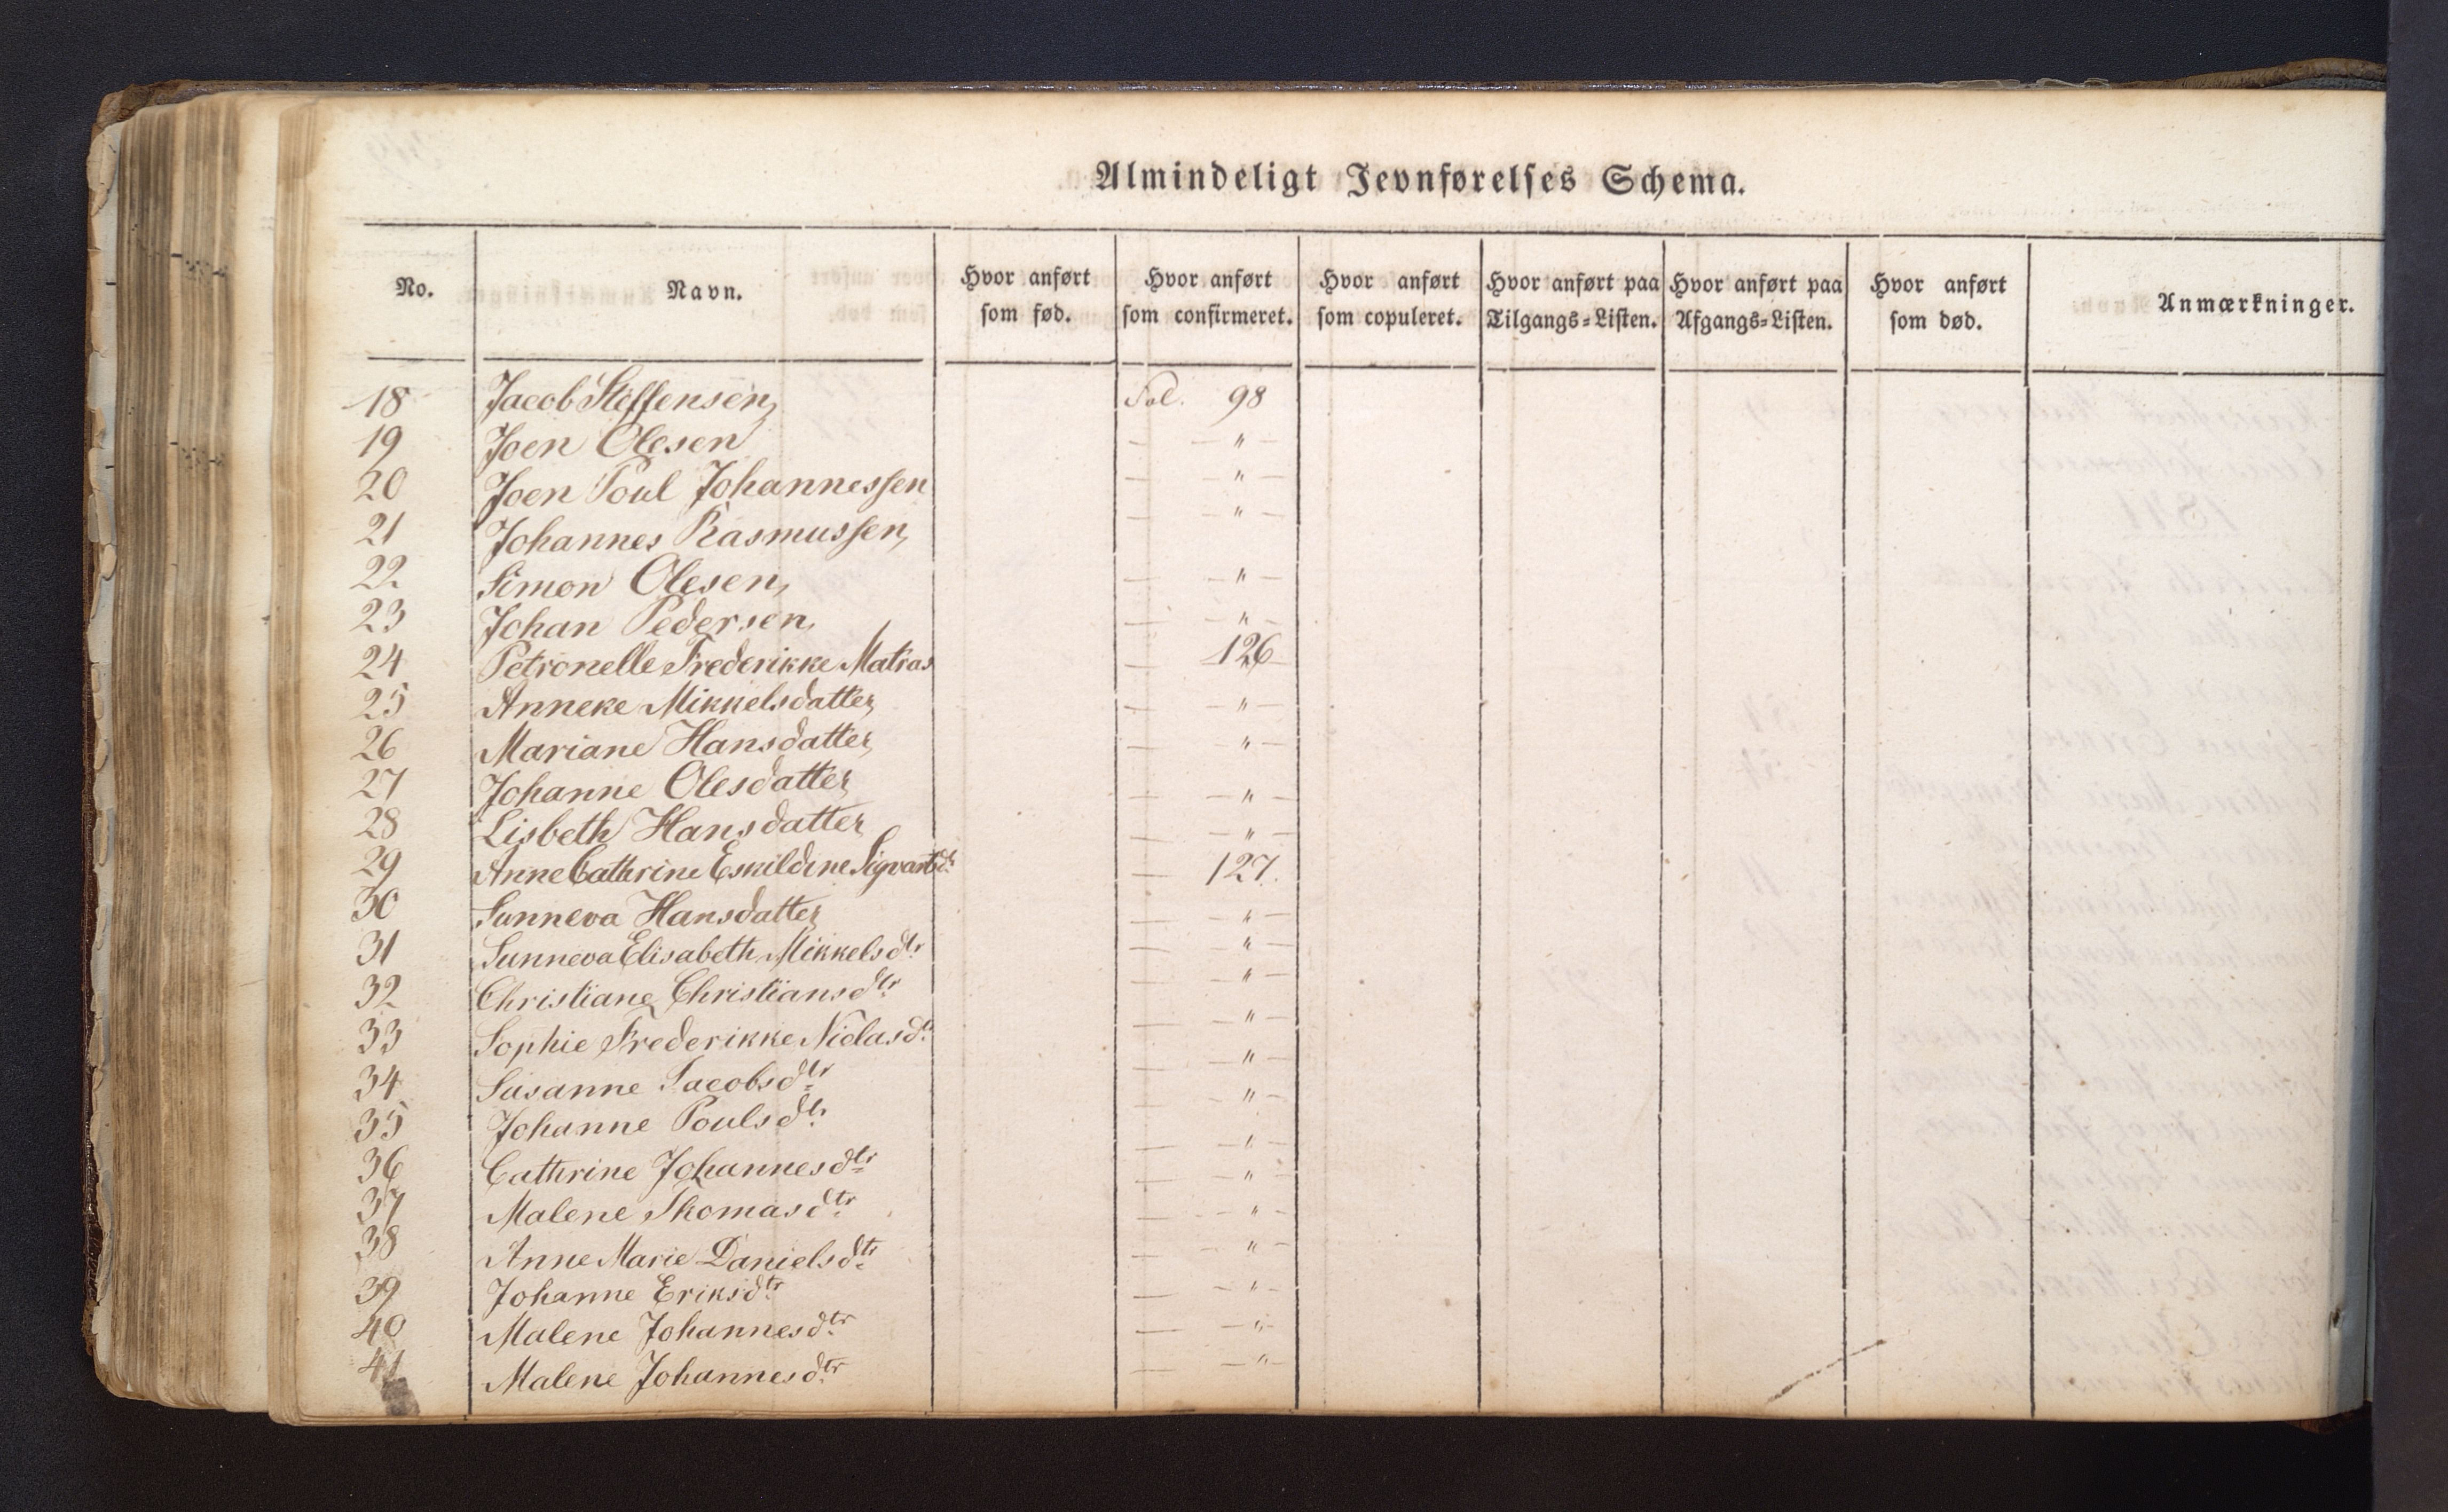 Almindeligt Jevnførelses Schema.
No. Navn. Hvor anført som fød. Hvor anført som confirmeret. Hvor anført som copuleret. Hvor anført paa Tilgangs=Listen. Hvor anført paa Afgangs=Listen. Hvor anført som død. Anmærkninger.
18 Jacob Steffensen, Fol. 98
19 Joen Olesen — — " —
20 Joen Poul Johannessen — — " —
21 Johannes Rasmussen, — — " —
22 Simon Olesen, — — " —
23 Johan Pedersen, — — " —
24 Petronelle Frederikke Matras — 126
25 Anneke Mikkelsdatter, — — " —
26 Mariane Hansdatter, — — " —
27 Johanne Olesdatter, — — " —
28 Lisbeth Hansdatter, — — " —
29 Anne Cathrine Eskildine Sigvartsdr — 127.
30 Sunneva Hansdatter, — — " —
31 Sunneva Elisabeth Mikkelsdtr — — " —
32 Christiane Christiansdtr — — " —
33 Sophie Frederikke Niclasdtr — — " —
34 Susanne Jacobsdtr — — " —
35 Johanne Poulsdtr — — " —
36 Cathrine Johannesdtr — — " —
37 Malene Thomasdtr — — " —
38 Anne Marie Danielsdtr — — " —
39 Johanne Eriksdtr — — " —
40 Malene Johannesdtr — — " —
41 Malene Johannesdtr — — " —